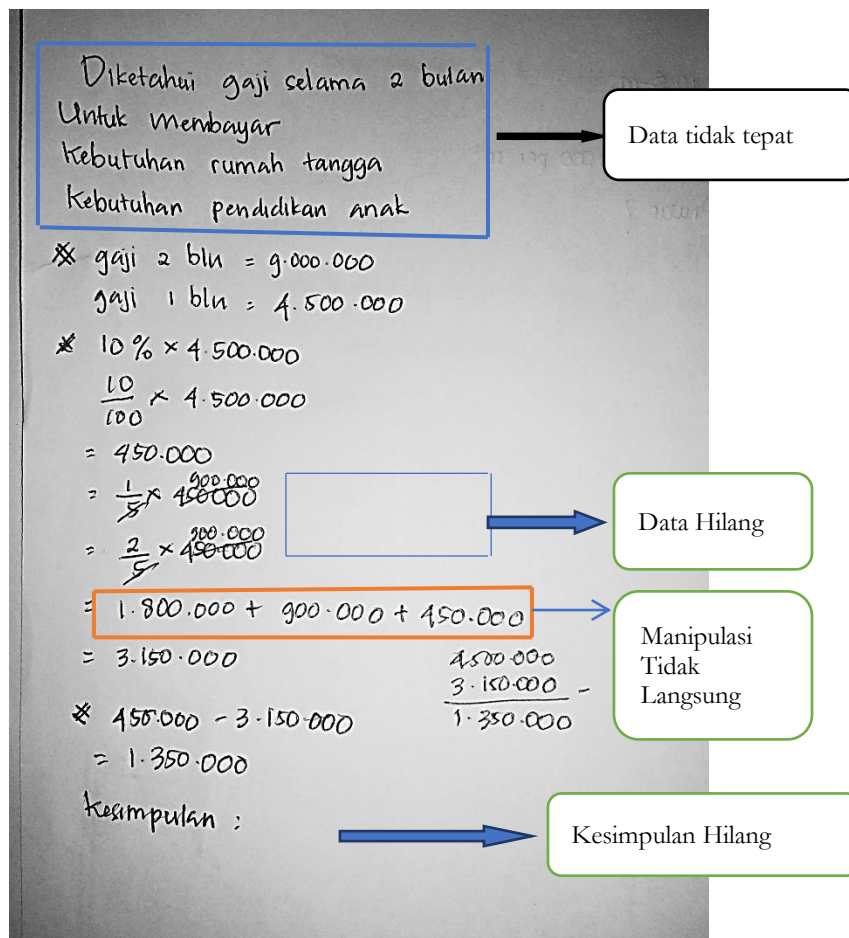 Diketahui gaji selama 2 bulan
Untuk membayar
Kebutuhan rumah tangga
Kebutuhan pendidikan anak
Data tidak tepat
* gaji 2 bln = 9.000.000
gaji 1 bln = 4.500.000
* 10% × 4.500.000
10/100 × 4.500.000
= 450.000
= 1/5 × 450000 900.000
= 2/5 × 450000 900.000
Data Hilang
= 1.800.000 + 900.000 + 450.000
Manipulasi
Tidak
Langsung
= 3.150.000
4500.000
3.150.000 -
1.350.000
* 450.000 - 3.150.000
= 1.350.000
Kesimpulan :
Kesimpulan Hilang